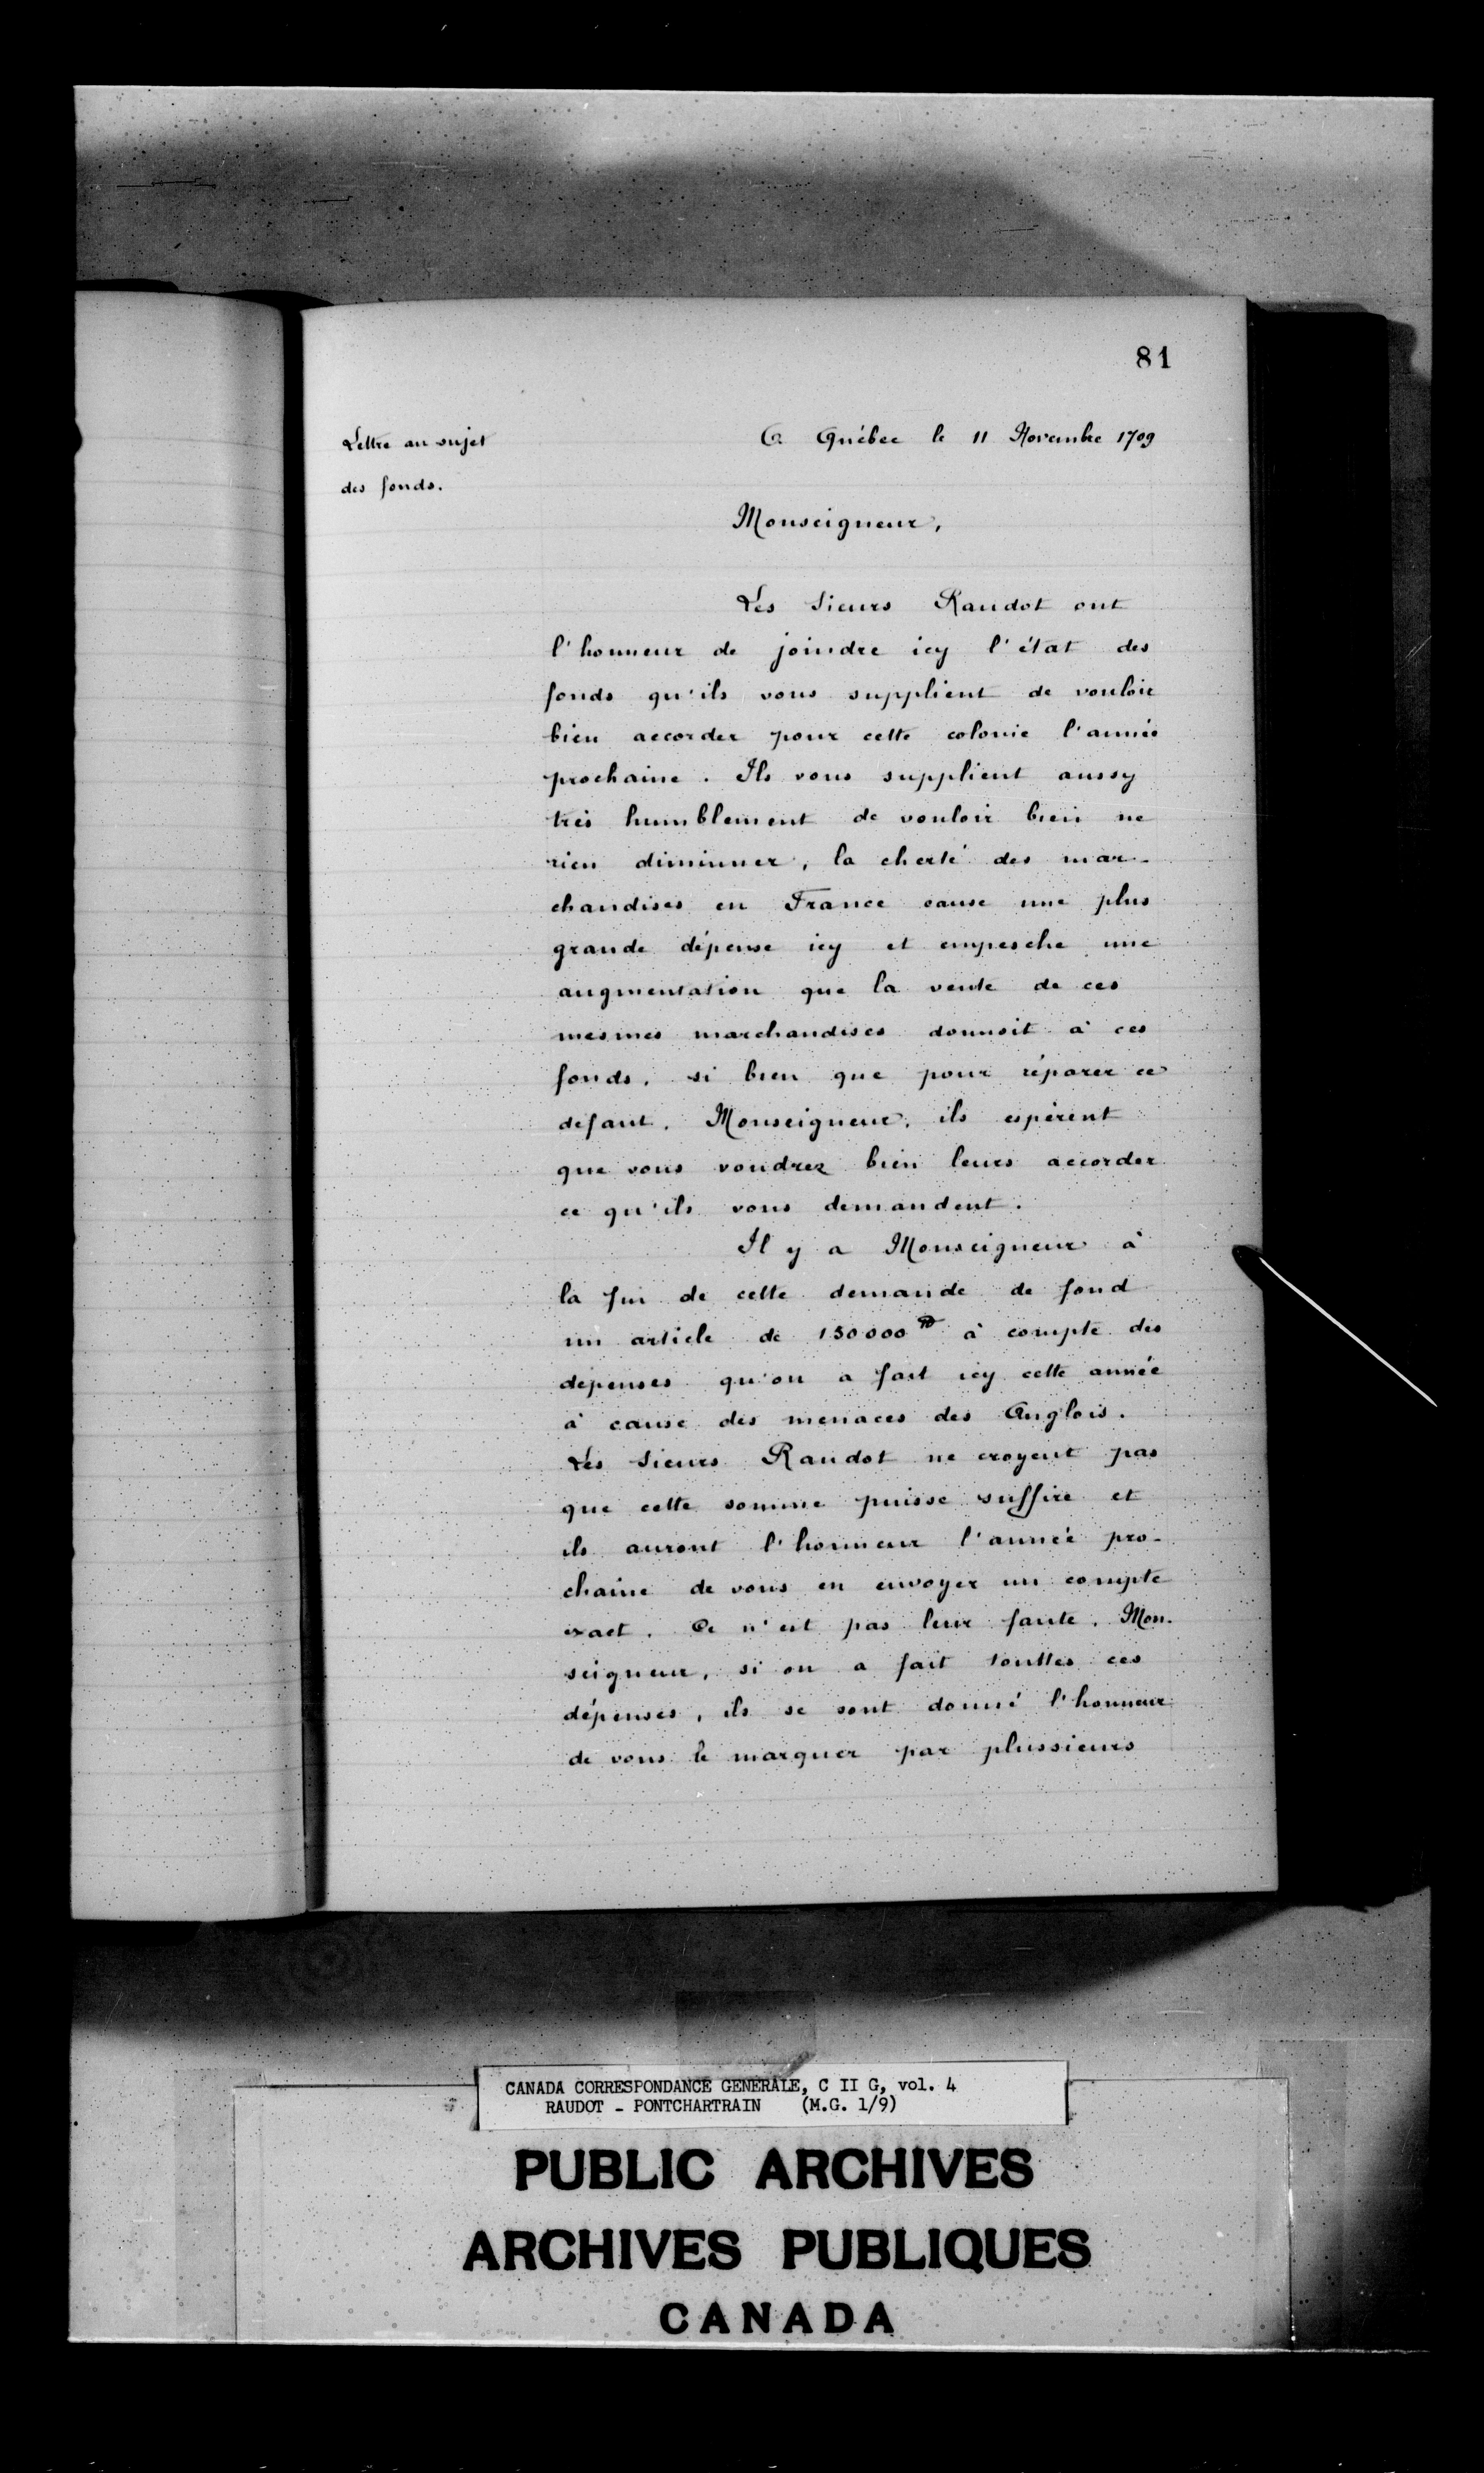 81
Lettre au sujet
des fonds.
A Québec le 11 Novembre 1709
Monseigneur,
Les Sieurs Raudot ont
l'honneur de joindre icy l'état des
fonds qu'ils vous supplient de vouloir
bien accorder pour cette colonie l'année
prochaine. Ils vous supplient aussy
très humblement de vouloir bien ne
rien diminuer, la cherté des mar-
chandises en France cause une plus
grande dépense icy et empesche une
augmentation que la vente de ces
mesmes marchandises donnoit à ces
fonds, si bien que pour réparer ce
defaut, Monseigneur, ils espèrent
que vous voudrez bien leurs accorder
ce qu'ils vous demandent.
Il y a Monseigneur à
la fin de cette demande de fond
un article de 150000 ₶ à compte des
dépenses qu'on a fait icy cette année
à cause des menaces des Anglois.
Les Sieurs Raudot ne croyent pas
que cette somme puisse suffire et
ils auront l'honneur l'année pro-
chaine de vous en envoyer un compte
exact. Ce n'est pas leur faute, Mon-
seigneur, si on a fait touttes ces
dépenses, ils se sont donné l'honneur
de vous le marquer par plussieurs
CANADA CORRESPONDANCE GENERALE, C II G, vol. 4
RAUDOT - PONTCHARTRAIN (M.G. 1/9)
PUBLIC ARCHIVES
ARCHIVES PUBLIQUES
CANADA